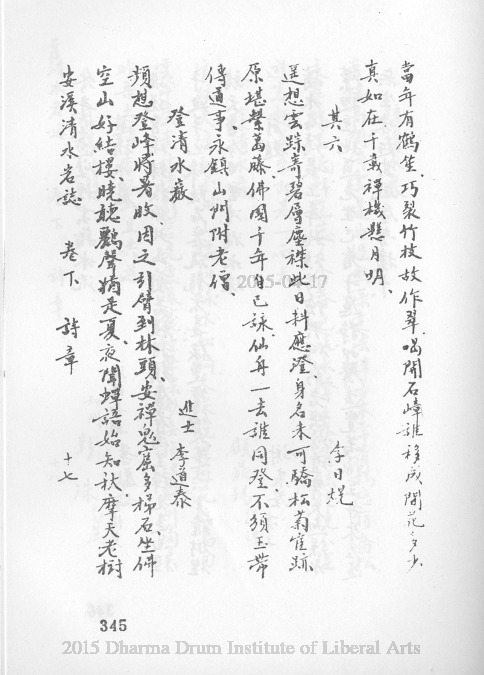 當年有鶴笙、巧裂竹枝故作翠、喝開石嶂誰移成閒花多少
真如在千載禪機懸月明、
其六 李日焜
遥想雲踪寄碧層塵襟此日抖應澄、身名未可驕松菊宦跡
原堪繫葛藤佛國千年自已詠、仙舟一去誰同登、不須玉帶
傳道事永鎮山門附老僧、
登清水巖
進士 李道泰
頻想登峰將暑收、因之引臂到林頭、安禪鬼窟多梯石、坐佛
空山好結樓、曉聽鸝聲猶是夏、夜聞蟬語始知秋、摩天老樹
安溪清水岩誌 卷下 詩章 十七
2015-04-17
345
2015 Dharma Drum Institute of Liberal Arts